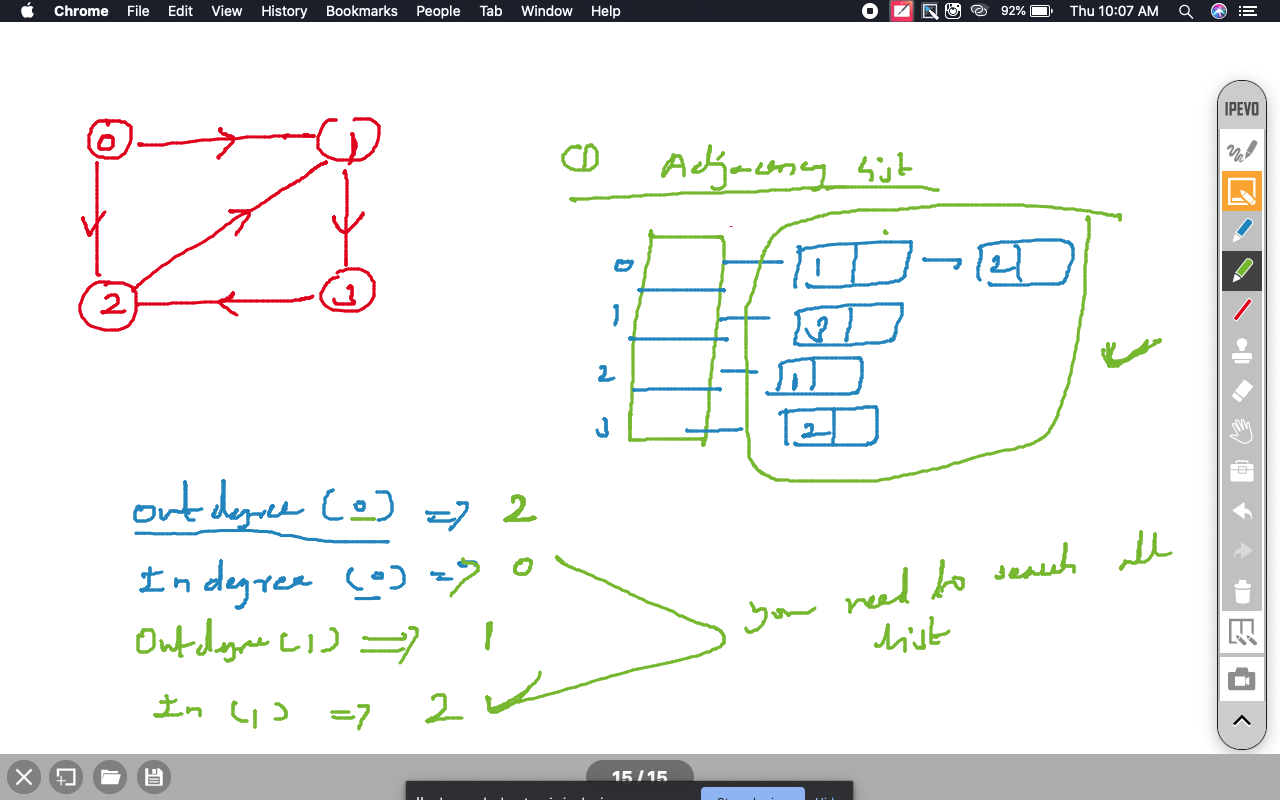 Chrome File Edit View History Bookmarks People Tab Window Help 92% Thu 10:07 AM
IPEVO
0 1
2 3
① Adjacency list
0 1 2
1 3
2 1
3 2
outdegree (0) => 2
Indegree (0) => 0
Outdgree (1) => 1
In (1) => 2
you need to search all
list
15 / 15